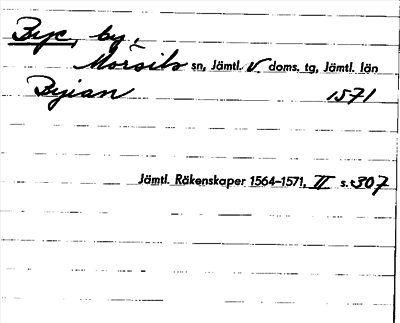 Bye, by,
Mörsils sn, Jämtl. V doms. tg, Jämtl. län
Byian 1571
Jämtl. Räkenskaper 1564-1571, II s. 307